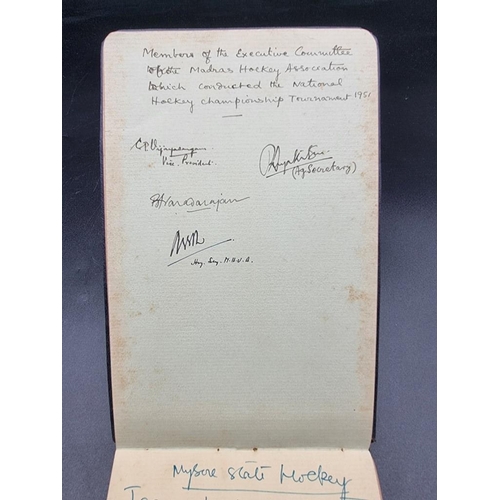 Members of the Executive Committee
of the Madras Hockey Association
which conducted the National
Hockey championship Tournament 1951
Vice. President.
(Ag Secretary)
Varadarajan
Hny. Sey. M.H.U.A.
Mysore State Hockey